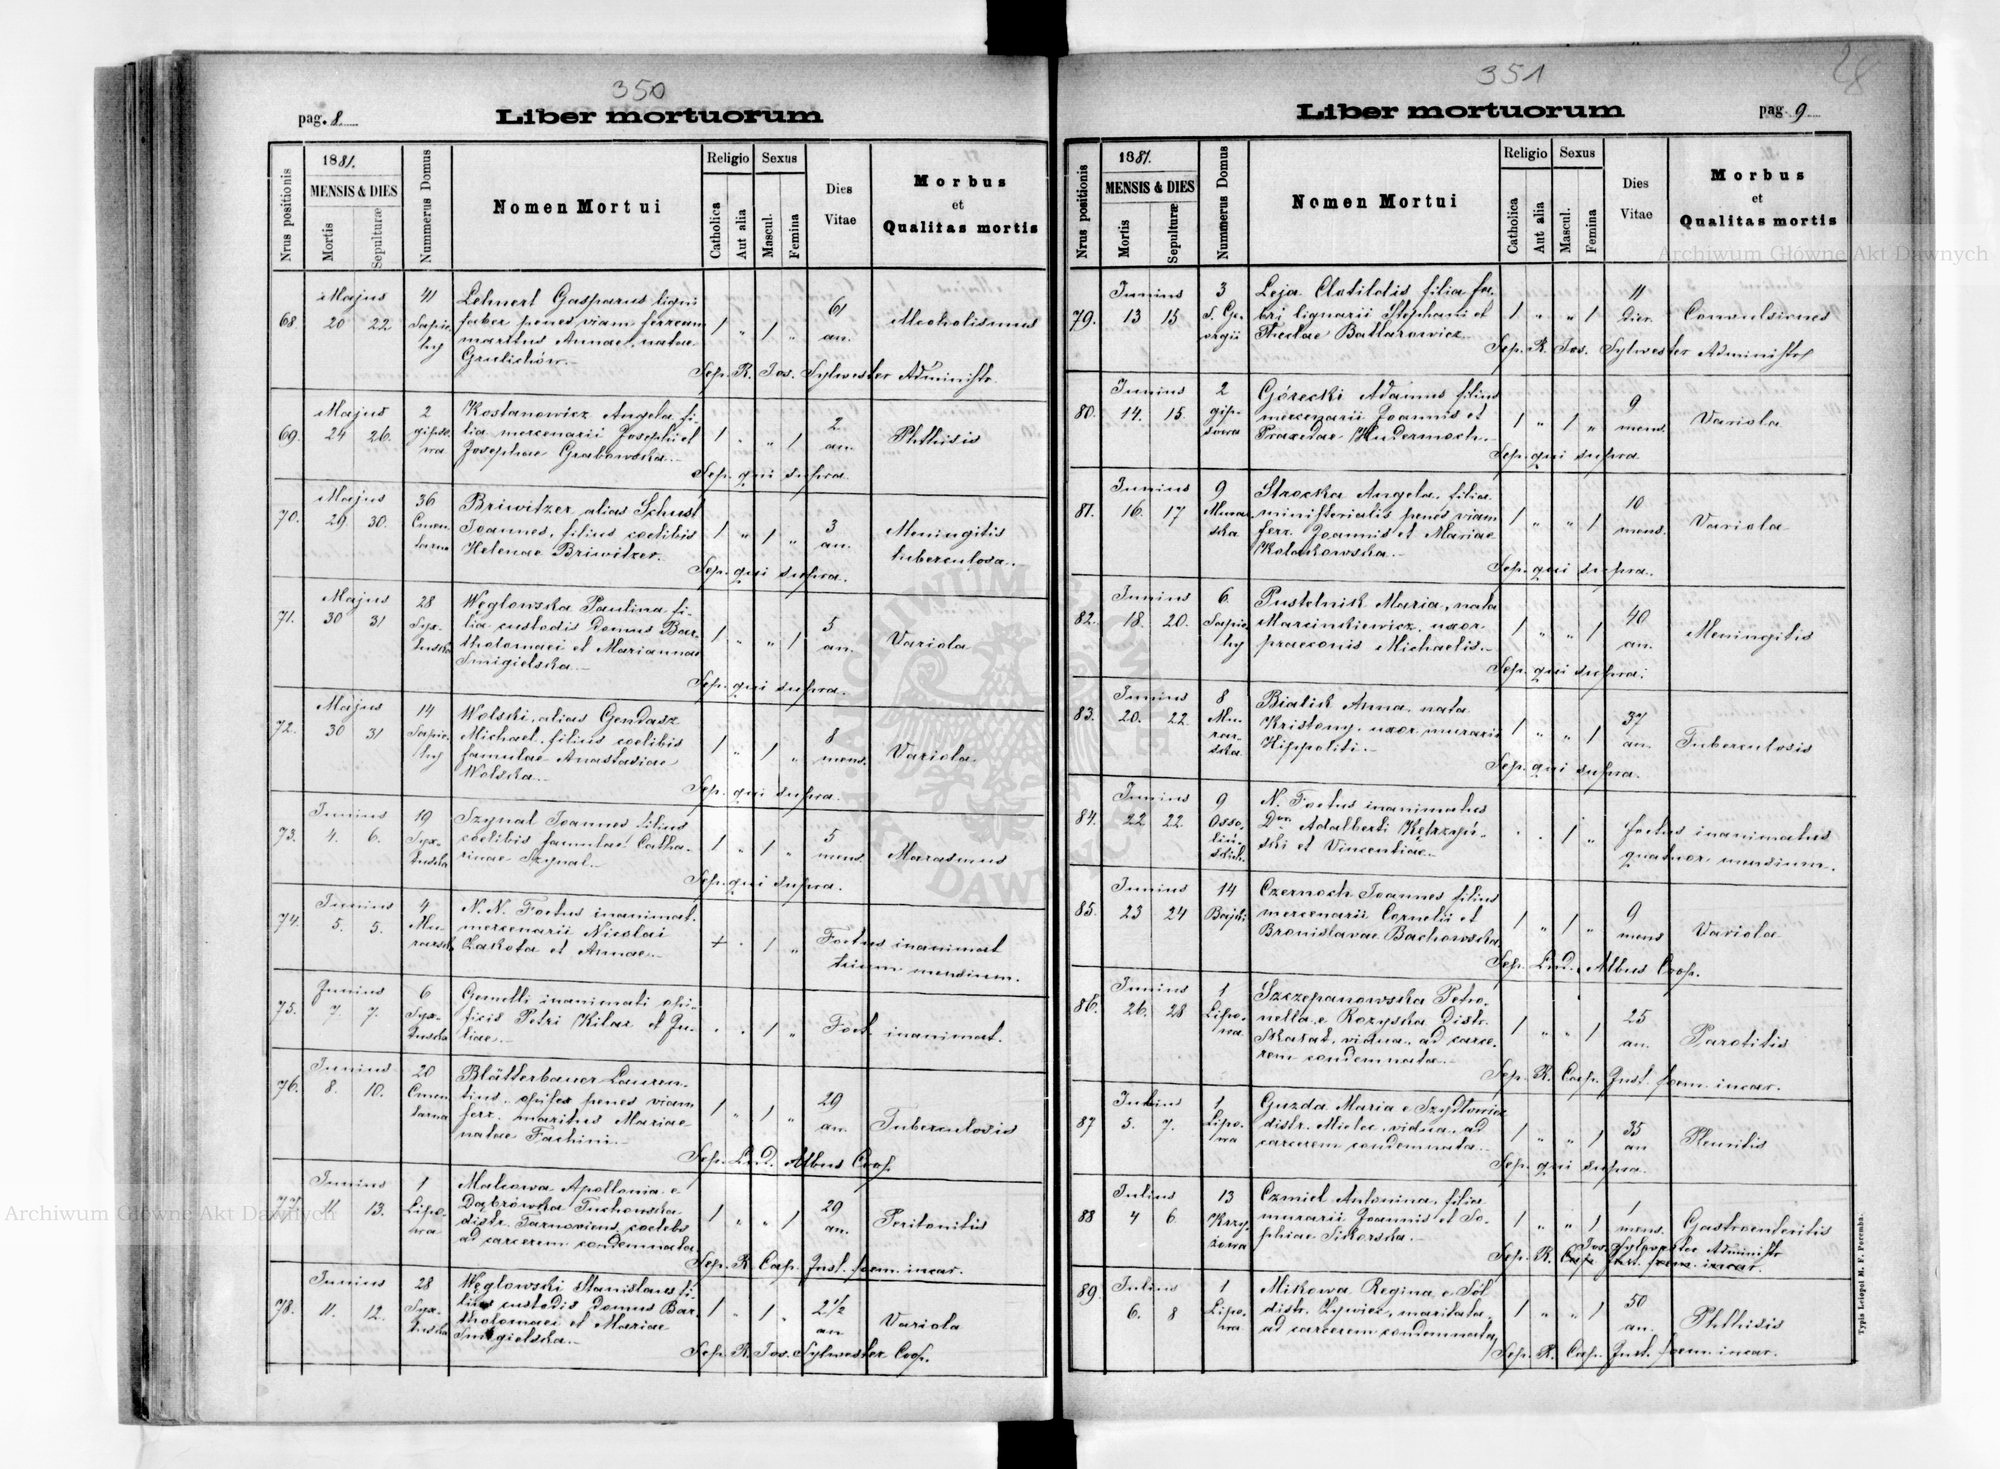 350
pag. 8
Liber mortuorum
Nrus positionis
1881.
MENSIS & DIES
Mortis
Sepulturæ
Nummerus Domus
Nomen Mortui
Religio
Catholica
Aut alia
Sexus
Mascul.
Femina
Dies
Vitae
Morbus
et
Qualitas mortis
68
Majus
20 22
41
Sapie-
hy
Lehnert Gasparus ligni
faber penes viam ferream
maritus Annae, natae
Grulichów.
1 „ 1 „
61
an.
Alcoholismus
Sep. R. Jos. Sylwester Administr.
69.
Majus
24 26.
2
gipso-
wa
Kostanowicz Angela fi-
lia mercenarii Josephi et
Josephae Grabowska.
1 „ „ 1
2
an.
Phthisis
Sep. qui supra.
70.
Majus
29 30.
36
Cmen
tarna
Briwitzer alias Schust
Joannes, filius coelibis
Helenae Briwitzer.
1 „ 1 „
3
an.
Meningitis
tuberculosa.
Sep. qui supra.
71.
Majus
30 31
28
Syx-
tuska
Węglowska Paulina fi-
lia custodis domus Bar-
tholomaei et Mariannae
Smigielska.
1 „ „ 1
5
an.
Variola
Sep. qui supra.
72.
Majus
30 31
14
Sapie-
hy
Wolski, alias Gendasz
Michael, filius coelibis
famulae Anastasiae
Wolska.
1 „ 1 „
8
mens.
Variola.
Sep. qui supra.
73.
Junius
4. 6.
19
Syx-
tuska
Szynal Joannes filius
coelibis famulae Catha-
rinae Szynal.
1 „ 1 „
5
mens.
Marasmus
Sep. qui supra.
74.
Junius
5. 5.
4
Mu-
rarsk
N. N. Foetus inanimat.
mercenarii Nicolai
Zakota et Annae.
+ . 1 „
Foetus inanimat
trium mensium.
75.
Junius
7. 7.
6
Syx-
tuska
Gemelli inanimati opi-
ficis Petri Kilar et Ju-
liae.
. . 1 „
Foet. inanimat.
76.
Junius
8. 10.
20
Cmen
tarna
Blätterbauer Lauren-
tius, opifex penes viam
ferr. maritus Mariae
natae Fachini.
1 „ 1 „
29
an.
Tuberculosis
Sep. Lud. Albus Coop.
77.
Junius
11. 13.
1
Lipo-
wa
Malcowa Apollonia e
Dąbrówka Tuchowska
distr. Tarnoviens, coelebs
ad carcerem condemnata.
1 „ „ 1
29
an.
Peritonitis
Sep. R. Cap. Inst. foem. incar.
78.
Junius
11. 12.
28
Syx-
tuska
Węglowski Stanislaus fi-
lius custodis domus Bar-
tholomaei et Mariae
Smigielska.
1 „ 1 „
2 1/2
an
Variola
Sep. R. Jos. Sylwester Coop.
351
28
Liber mortuorum
pag. 9
Nrus positionis
1881.
MENSIS & DIES
Mortis
Sepulturæ
Nummerus Domus
Nomen Mortui
Religio
Catholica
Aut alia
Sexus
Mascul.
Femina
Dies
Vitae
Morbus
et
Qualitas mortis
79.
Junius
13 15
3
S. Ge-
orgii
Leja Clotildis filia fa-
bri lignarii Stephani et
Theclae Batlarowicz.
1 „ „ 1
11
dier.
Convulsiones
Sep. R. Jos. Sylwester Administr
80.
Junius
14. 15.
2
gip-
sowa
Górecki Adamus filius
mercenarii Joannis et
Praxedae Hudermoch.
1 „ 1 „
9
mens.
Variola
Sep. qui supra
81.
Junius
16. 17
9
Murar
ska
Strocka Angela, filia
ministerialis penes viam
ferr. Joannis et Mariae
Kolankowska.
1 „ „ 1
10
mens.
Variola
Sep. qui supra.
82.
Junius
18. 20.
6
Sapie-
hy
Pustelnik Maria, nata
Marcinkiewicz, uxor
praeconis Michaelis.
1 „ „ 1
40
an.
Meningitis
Sep. qui supra.
83.
Junius
20. 22.
8
Mu-
rar-
ska
Bialik Anna, nata
Kristony, uxor muraris
Hippoliti.
1 „ „ 1
37
an.
Tuberculosis
Sep. qui supra.
84.
Junius
22 22.
9
Osso-
liń-
skich.
N. Foetus inanimatus
Dni Adalberti Kętrzyń-
ski et Vincentiae.
. . 1 „
foetus inanimatus
quatuor mensium.
85.
Junius
23 24
14
Bajki
Czernoch Joannes filius
mercenarii Cornelii et
Bronislavae Bachowska
1 „ 1 „
9
mens
Variola
Sep. Lud. Albus Coop.
86.
Junius
26. 28
1
Lipo-
wa
Szczepanowska Petro-
nella e Rozyska distr.
Skałat, vidua, ad carce-
rem condemnata.
1 „ „ 1
25
an.
Parotitis
Sep. R. Cap. Inst. foem. incar.
87
Julius
5. 7.
1
Lipo-
wa
Guzda Maria e Szydłowiec
distr. Mielec, vidua, ad
carcerem condemnata.
1 „ „ 1
35
an
Pleuritis
Sep. qui supra.
88
Julius
4 6.
13
Krzy-
żowa
Czmiel Antonina, filia
murarii Joannis et So-
phiae Sikorska.
1 „ „ 1
1
mens.
Gastroenteritis
Jos. Sylwester Administr
Sep. R. Cap. Inst. foem. incar.
89
Julius
6. 8
1
Lipo-
wa
Mikowa Regina e Sól
distr. Żywiec, maritata,
ad carcerem condemnata
1 „ „ 1
50
an.
Phthisis
Sep. R. Cap. Inst. foem. incar.
Typis Leopol M. F. Poremba.
Archiwum Główne Akt Dawnych
Archiwum Główne Akt Dawnych
ARCHIWUM GŁÓWNE AKT DAWNYCH